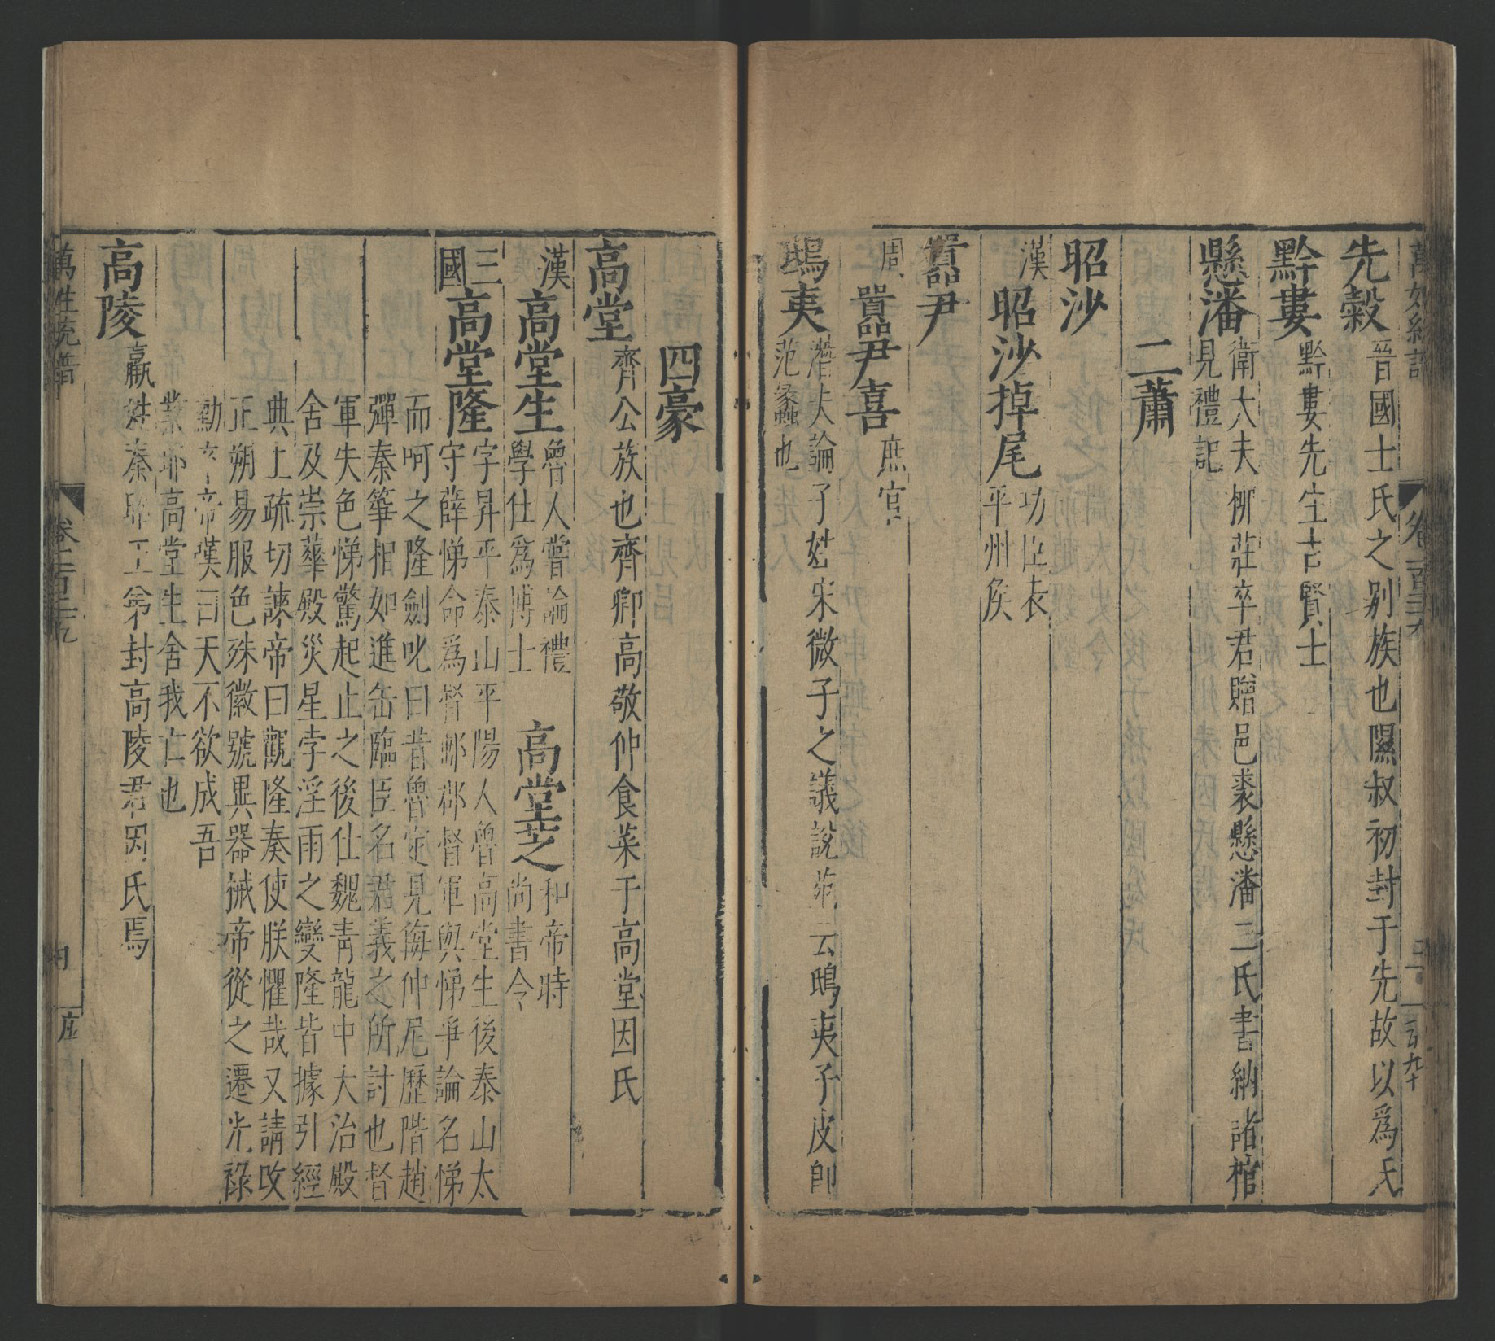 先縠晉國士氏之别族也隰叔初封于先故以爲氏
黔婁黔婁先生古賢士
懸潘衛大夫柳莊卒君贈邑裘懸潘三氏書納諸棺
見禮記
二蕭
昭沙
漢昭沙掉尾功臣表
平州侯
嚚尹
周嚚尹喜庶官
鴟夷大論子姓宋微子之議說苑云鴟夷子皮師
范蠡也
四豪
高堂齊公族也齊卿高敬仲食菜于高堂因氏
漢高堂生魯人嘗論禮
學仕爲博士
高堂芝和帝時
尚書令
三國高堂隆字昇平泰山平陽人魯高堂生後泰山太
守薛悌命爲督郵郡督軍與悌爭論名悌
而呵之隆劍叱曰昔魯定見侮仲尼歷階趙
彈秦箏相如進缶臨臣名君義之所討也督
軍失色悌驚起止之後仕魏青龍中大治殿
舍及崇華殿災星孛淫雨之變隆皆據引經
典上疏切諫帝曰觀隆奏使朕懼哉又請改
正朔易服色殊徽號異器械帝從之遷光祿
勳卒帝嘆曰天不欲成吾
業耶高堂生舍我亡也
高陵嬴姓秦昭王弟封高陵君因氏焉
萬姓統譜